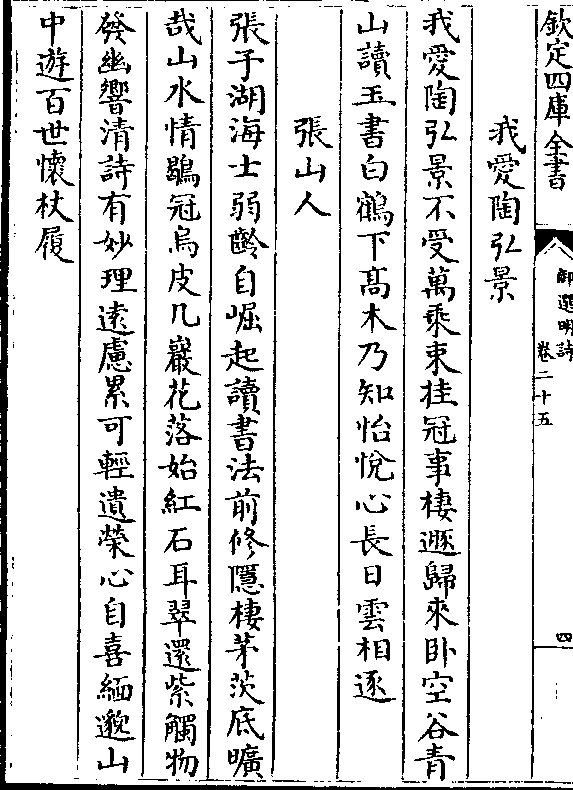 欽定四庫全書
御選明詩
卷二十五
四
我愛陶弘景
我愛陶弘景不受萬乘束挂冠事棲遯歸來卧空谷青
山讀玉書白鶴下髙木乃知怡悅心長日雲相逐
張山人
張子湖海士弱齡自崛起讀書法前修隱棲茅茨底曠
哉山水情鶡冠烏皮几巖花落始紅石耳翠還紫觸物
發幽響清詩有妙理遠慮累可輕遺榮心自喜緬邈山
中遊百世懷杖履